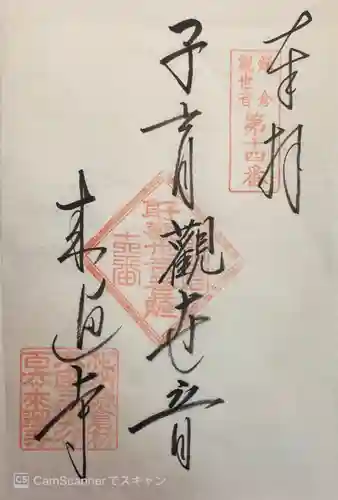 奉拝
鎌倉
観世音
第十四番
子育觀世音
来迎寺
CS CamScannerでスキャン